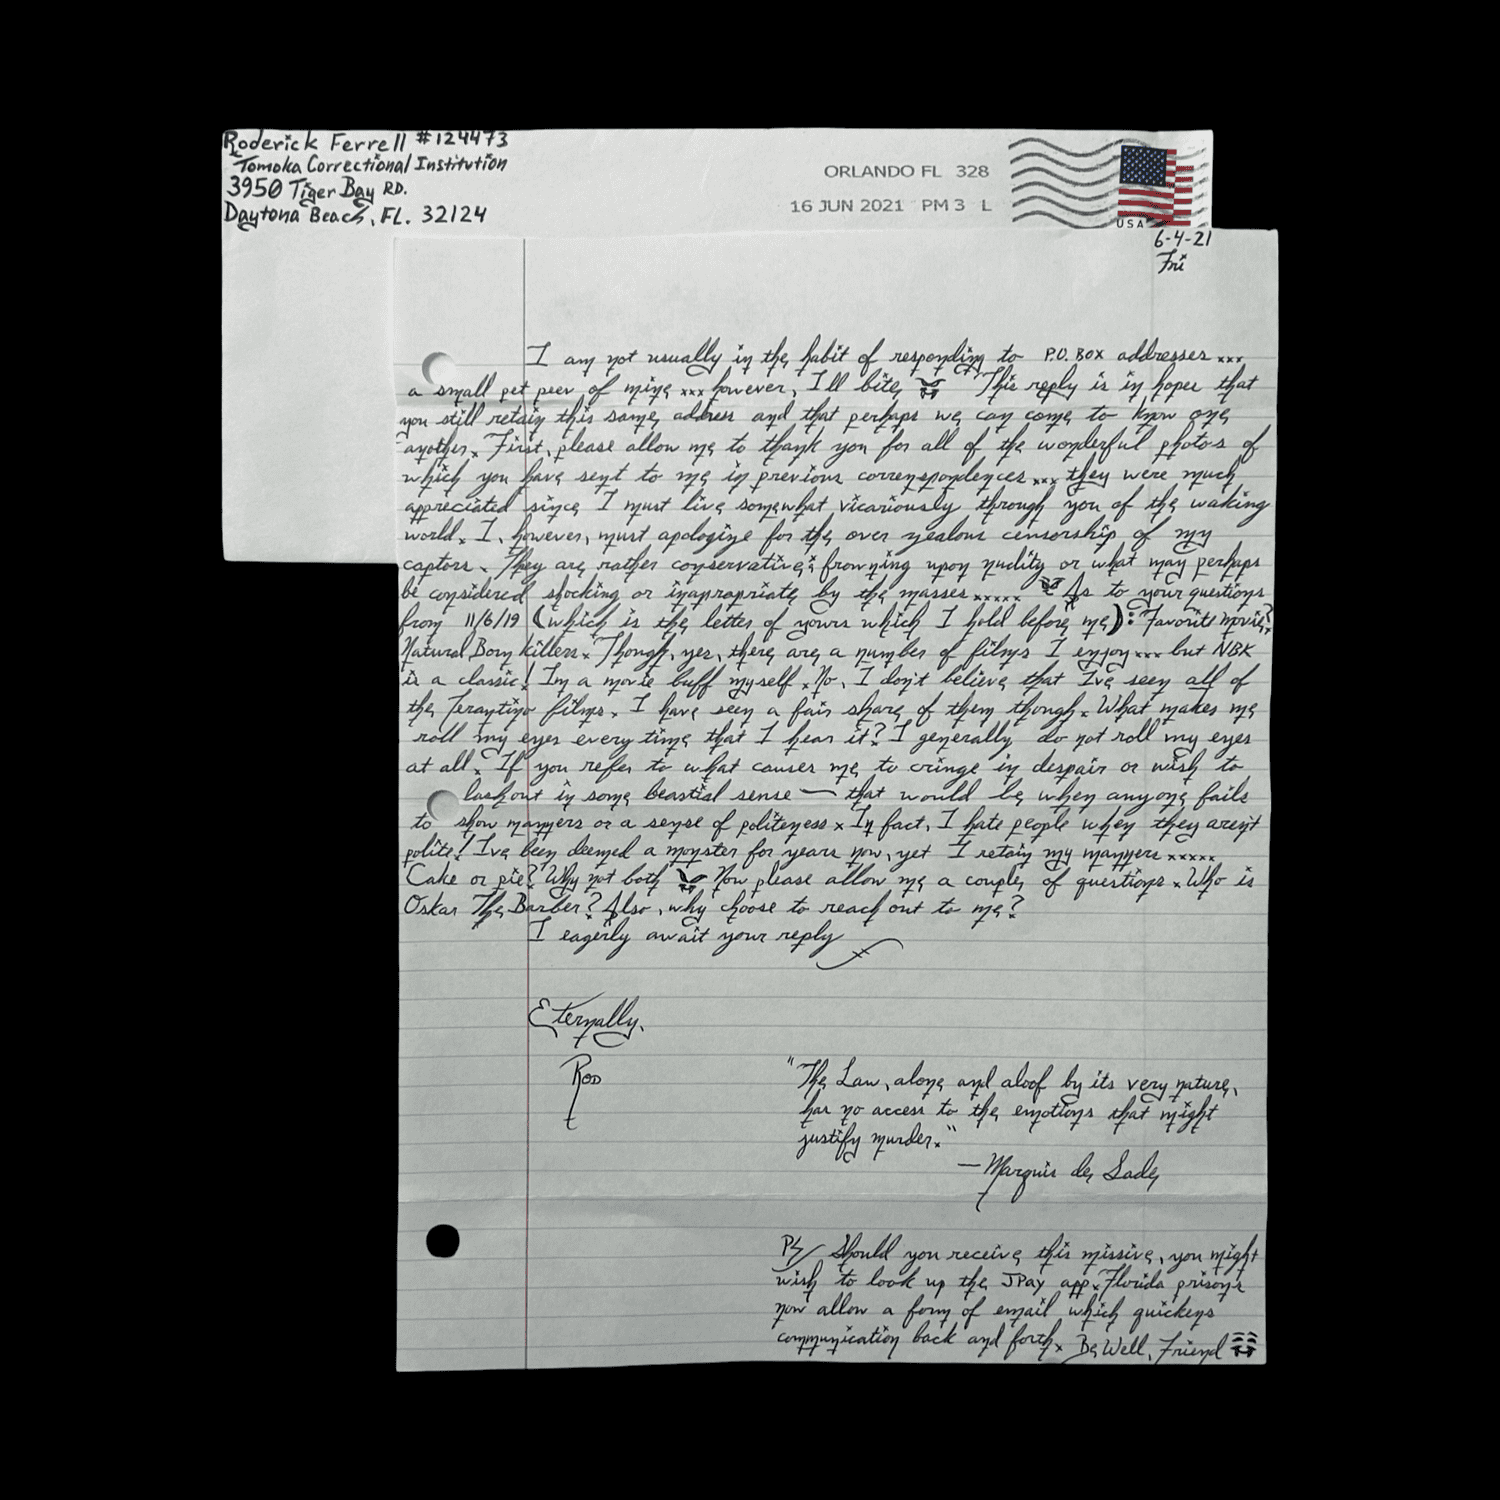 Roderick Ferrell #124473
Tomoka Correctional Institution
3950 Tiger Bay RD.
Daytona Beach, FL. 32124
ORLANDO FL 328
16 JUN 2021 PM 3 L
USA
6-4-21
Fri
I am not usually in the habit of responding to P.O. BOX addresses...
a small pet peev of mine... however, I'll bite, This reply is in hopes that
you still retain this same address and that perhaps we can come to know one
another. First, please allow me to thank you for all of the wonderful photos of
which you have sent to me in previous correnspondences... they were much
appreciated since I must live somewhat vicariously through you of the waking
world. I, however, must apologize for the over zealous censorship of my
captors. They are rather conservative; frowning upon nudity or what may perhaps
be considered shocking or inapropriate by the masses..... As to your questions
from 11/6/19 (which is the letter of yours which I hold before me): Favorite movie?
Natural Born Killers. Though, yes, there are a number of films I enjoy... but NBK
is a classic! Im a movie buff myself. No, I don't believe that I've seen all of
the Terantino films. I have seen a fair share of them though. What makes me
roll my eyes every time that I hear it? I generally do not roll my eyes
at all. If you refer to what causes me to cringe in despair or wish to
lashout in some beastial sense — that would be when anyone fails
to show manners or a sense of politeness. In fact, I hate people when they aren't
polite! I've been deemed a monster for years now, yet I retain my manners.....
Cake or pie? Why not both Now please allow me a couple of questions. Who is
Oskar The Barber? Also, why choose to reach out to me?
I eagerly await your reply
Eternally,
Rod
"The Law, alone and aloof by its very nature,
has no access to the emotions that might
justify murder."
—Marquis de Sade
PS/ Should you receive this missive, you might
wish to look up the JPay app. Florida prisons
now allow a form of email which quickens
communication back and forth. Be Well, Friend